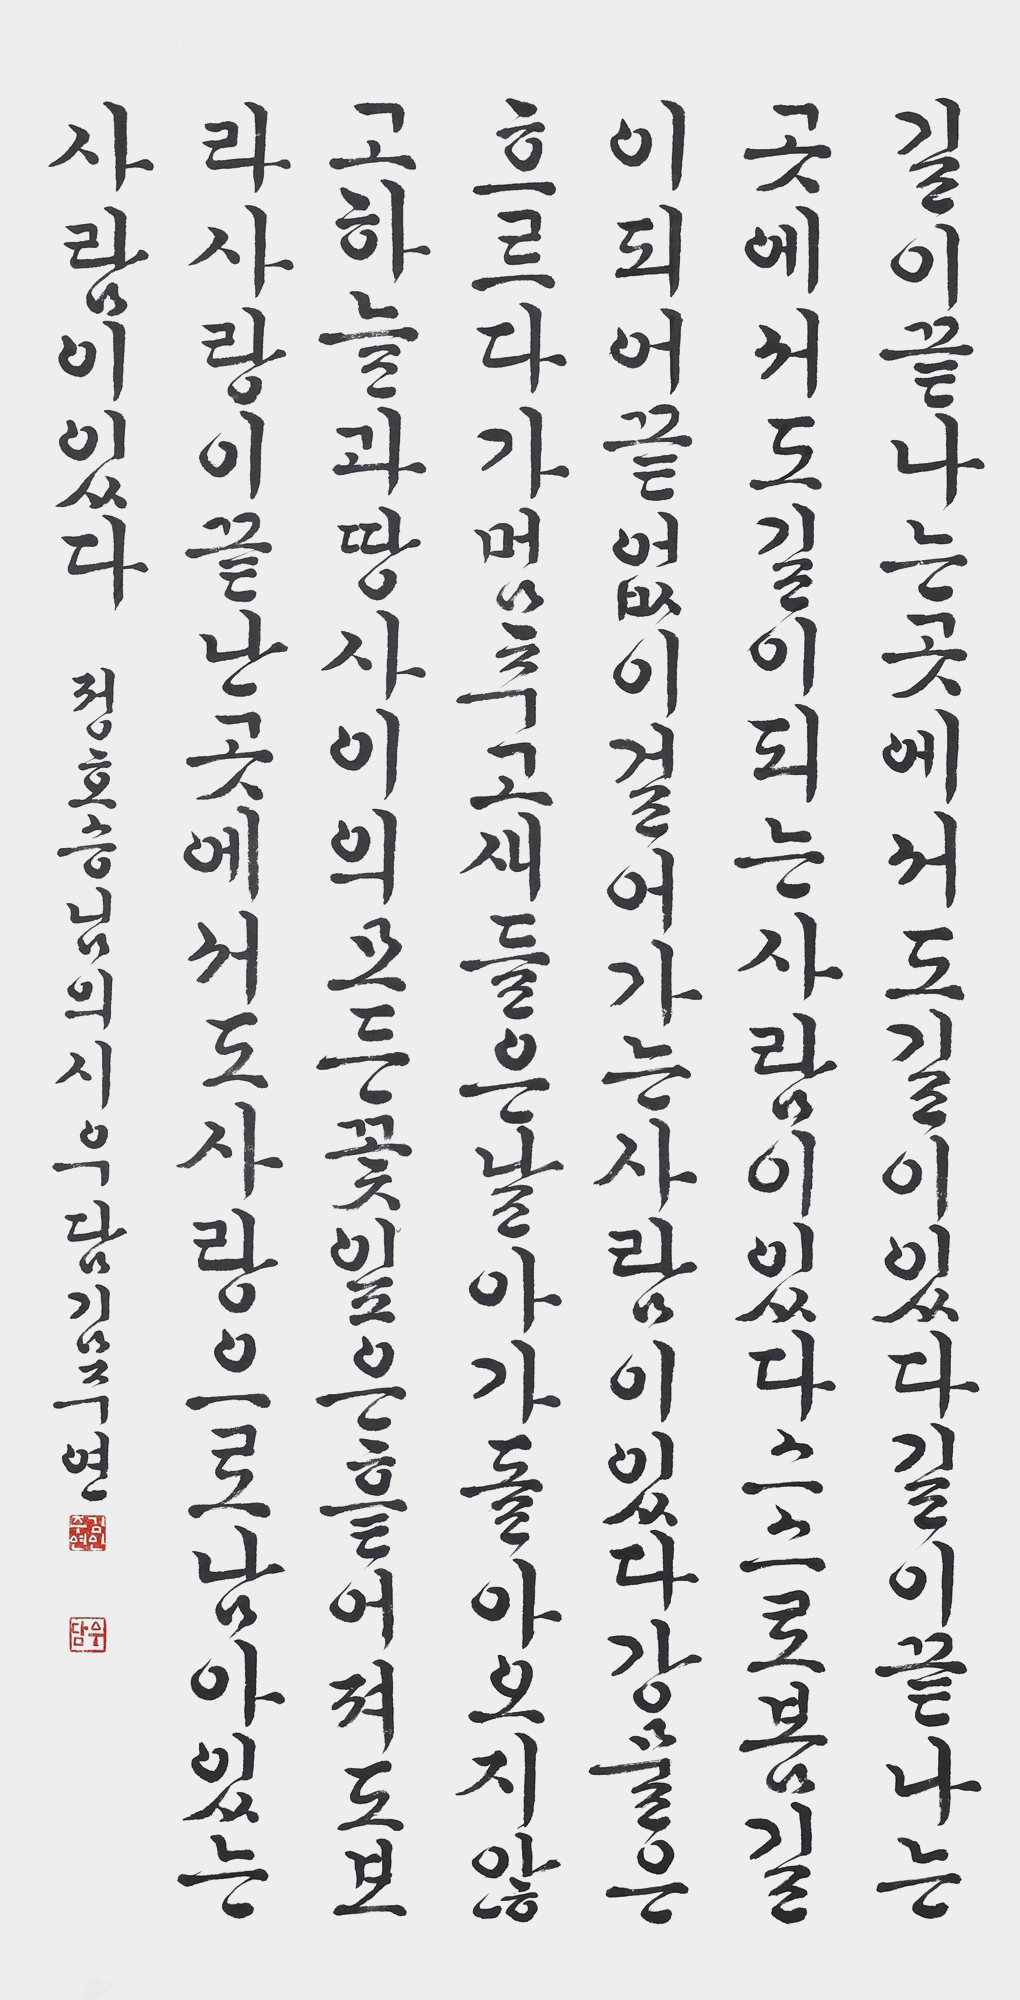 길이끝나는곳에서도길이있다길이끝나는
곳에서도길이되는사람이있다스스로봄길
이되어끝없이걸어가는사람이있다강물은
흐르다가멈추고새들은날아가돌아오지않
고하늘과땅사이의모든꽃잎은흩어져도보
라사랑이끝난곳에서도사랑으로남아있는
사람이있다 정호승님의시우담김주연
김인주연
우담